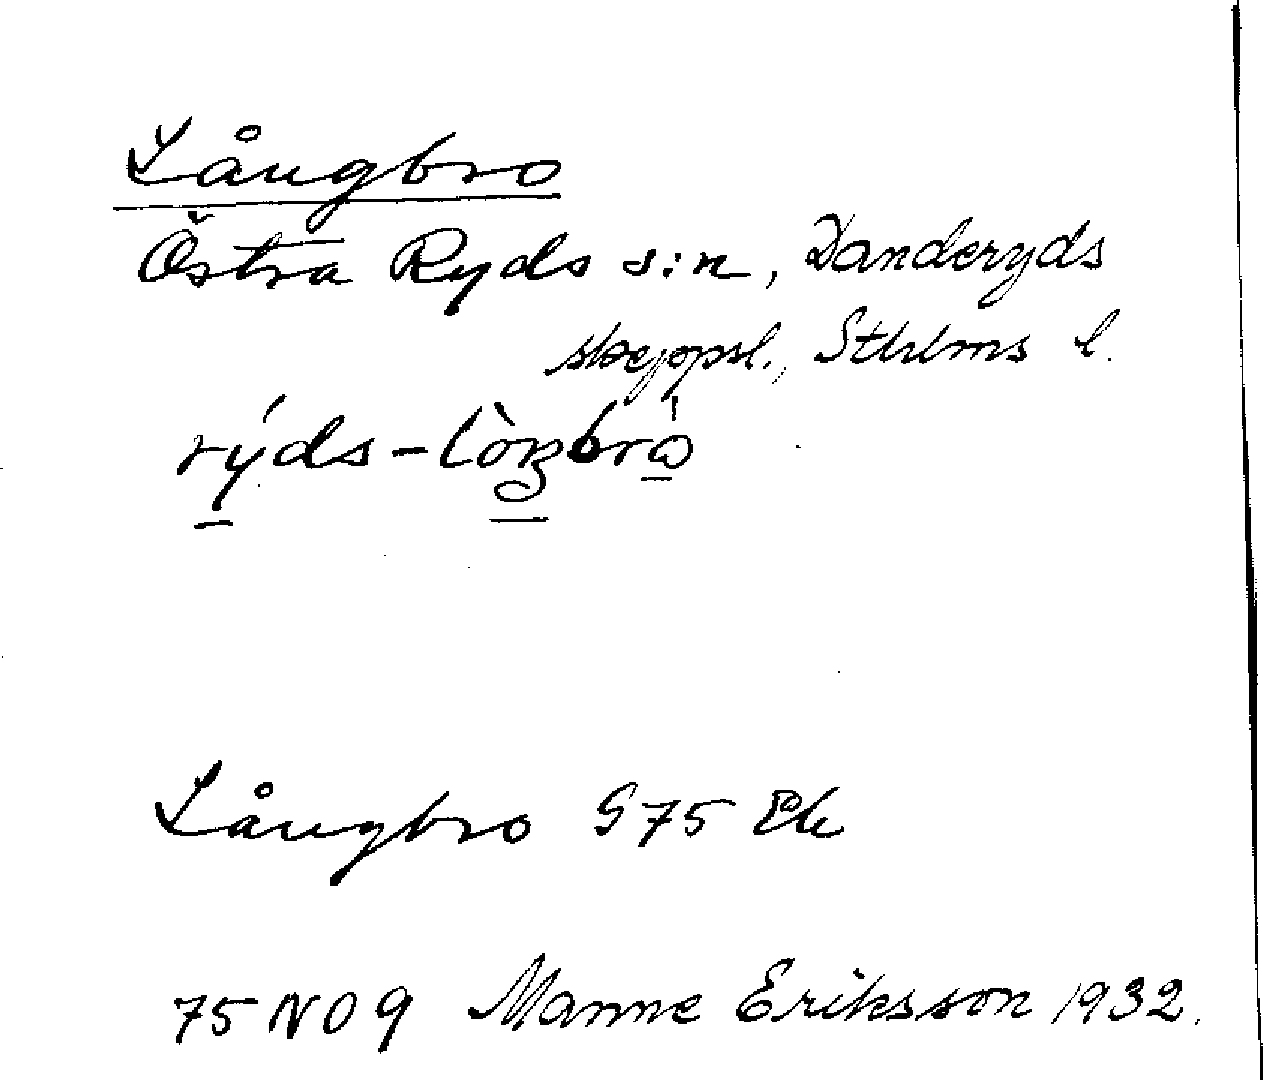 Långbro
Östra Ryds s:n, Danderyds
skeppsl., Sthlms l.
rýds-lòŋbrò
Långbro G75 Ek
75 NO 9 Manne Eriksson 1932.